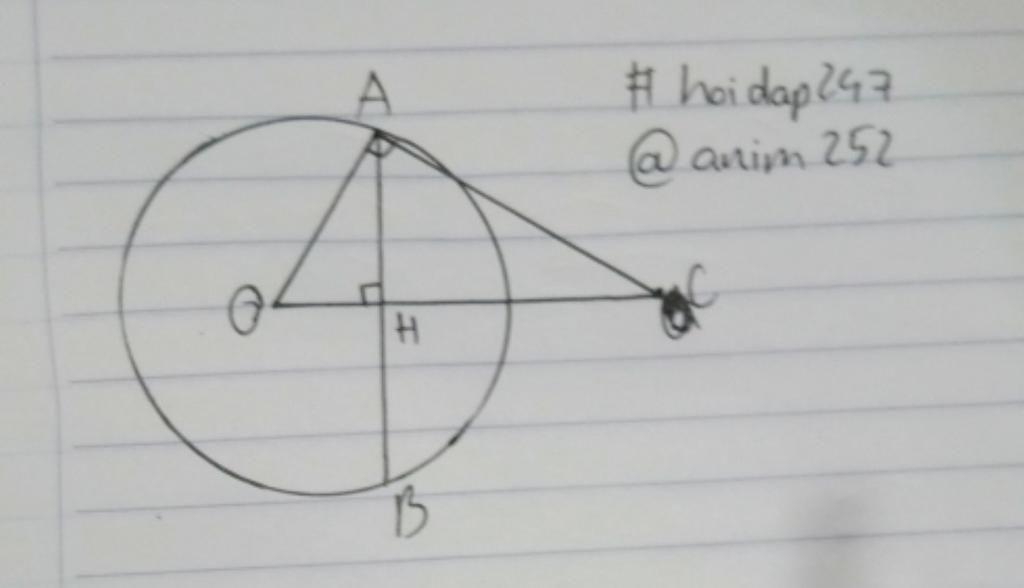 A
# hoidap247
@anim252
O
H
C
B